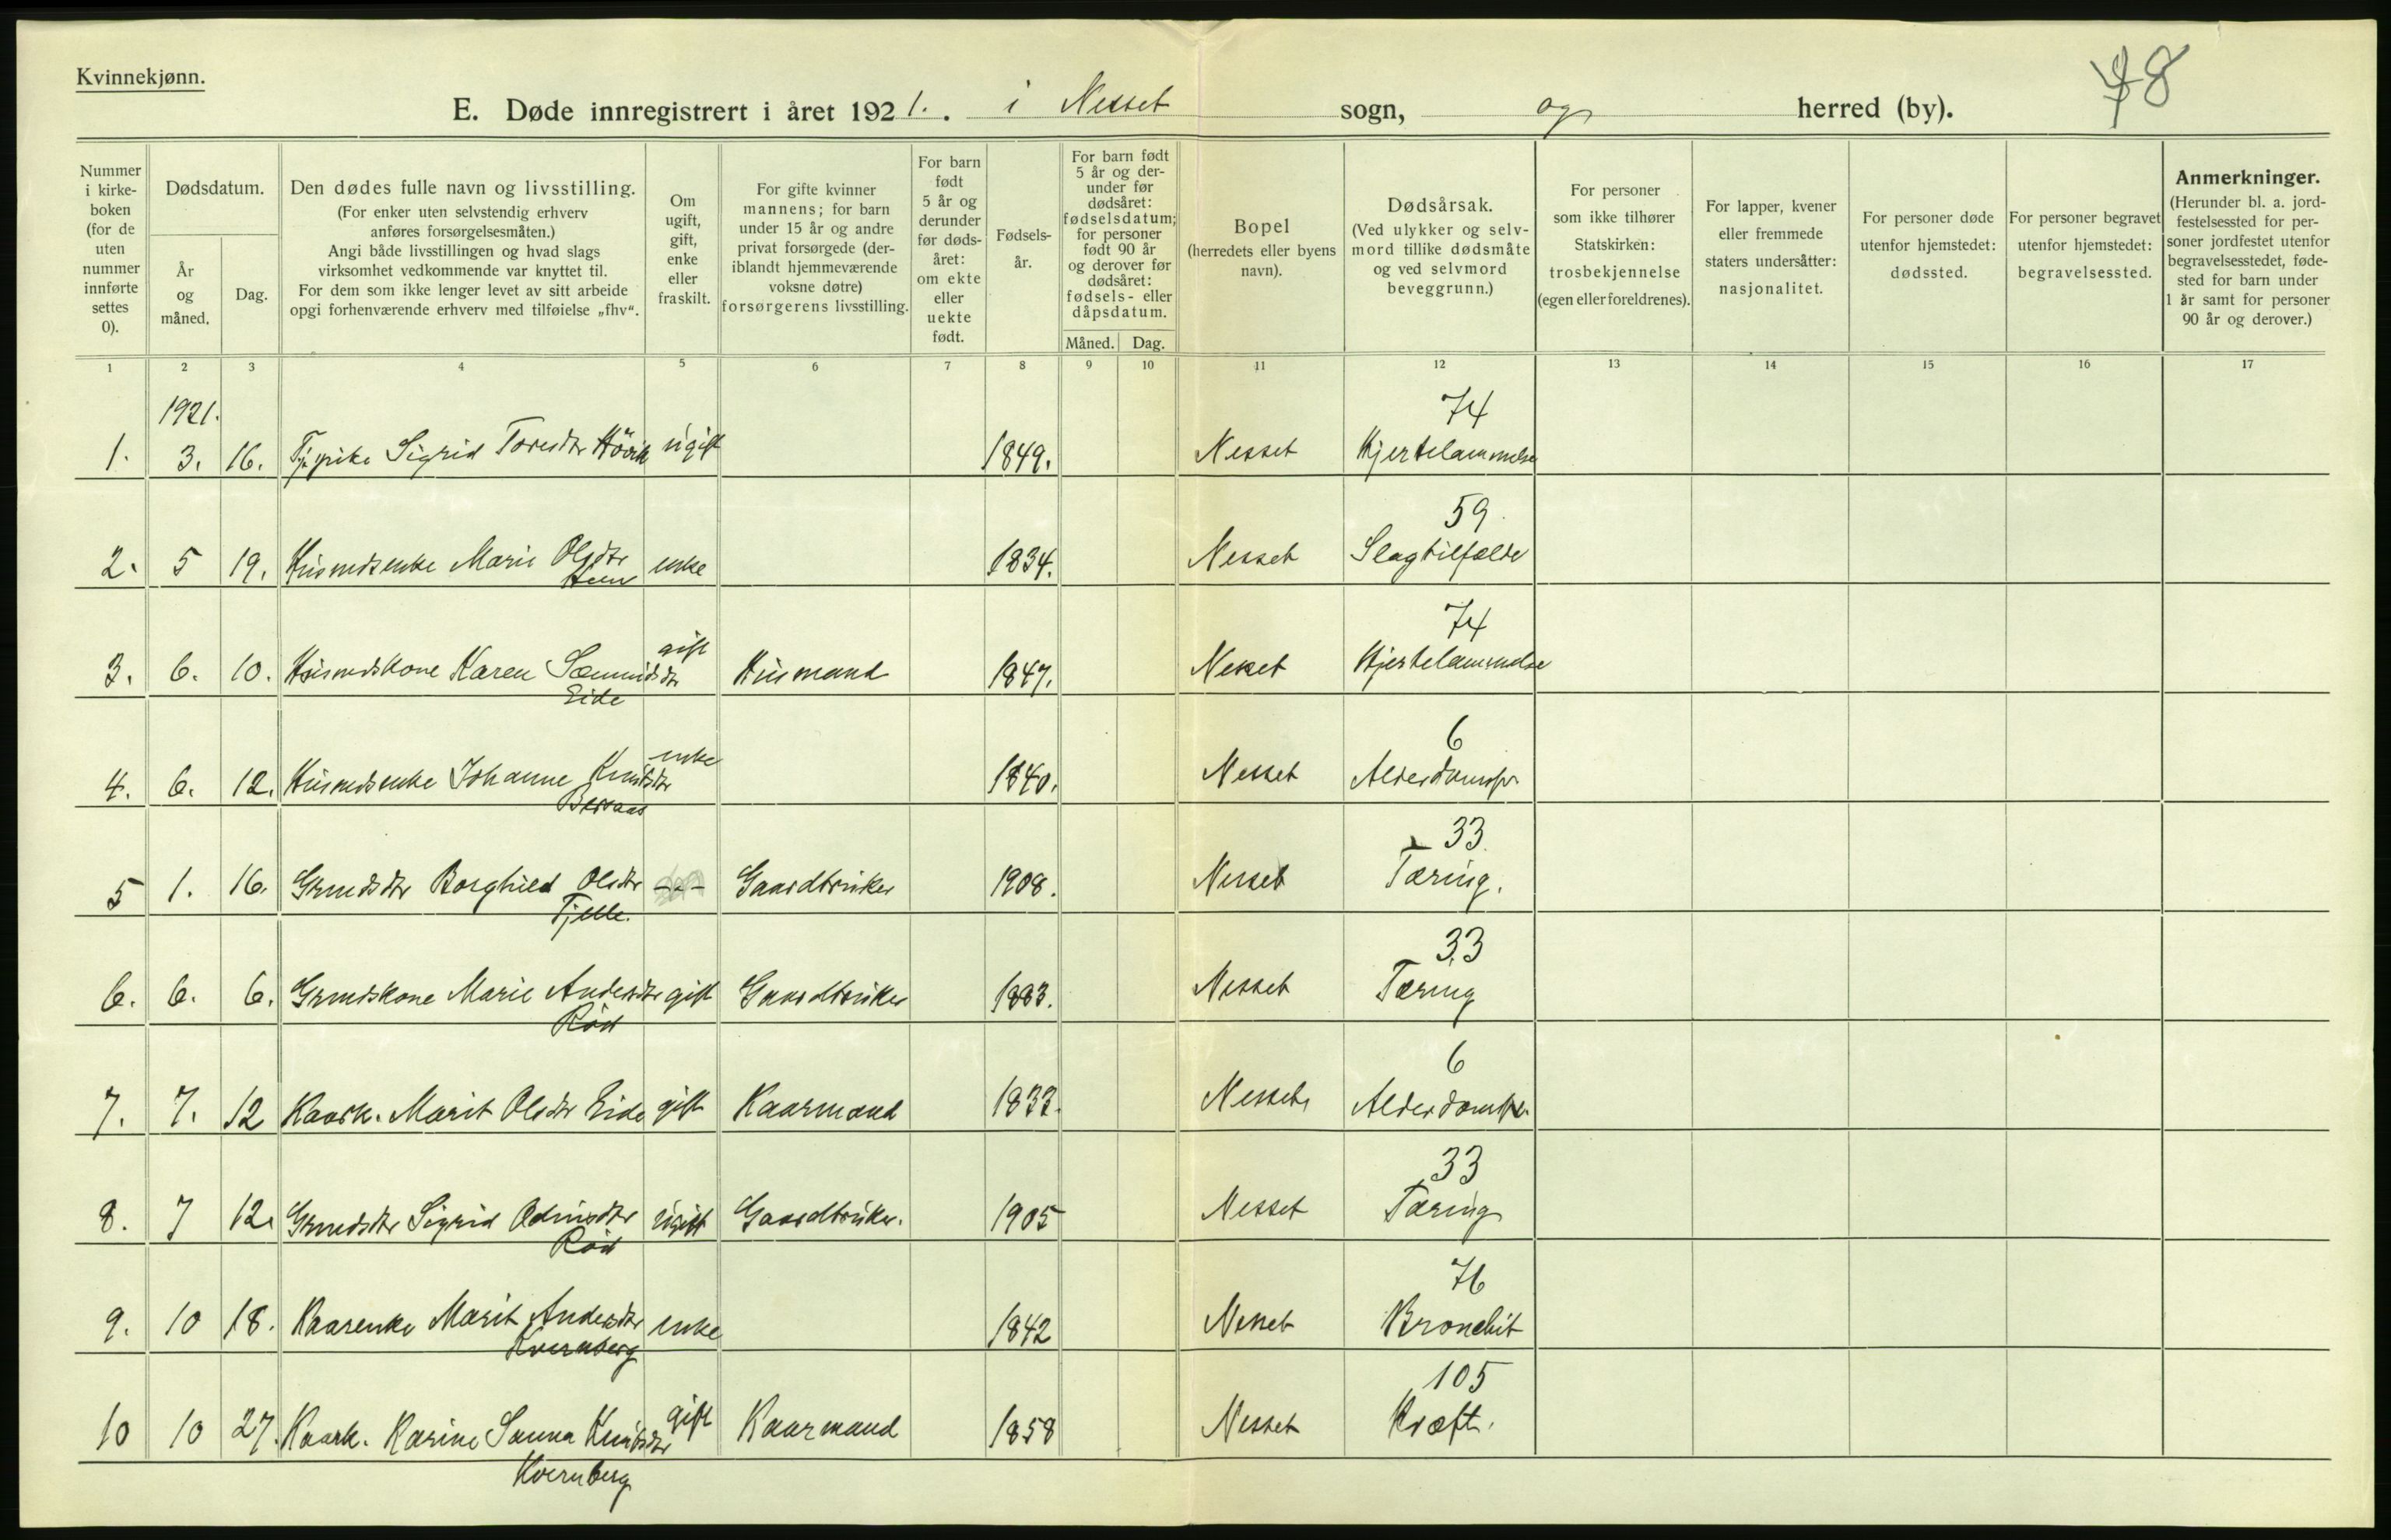 Kvinnekjønn.
78
E. Døde innregistrert i året 1921. i Nesset sogn, og herred (by).
Nummer i kirkeboken (for de uten nummer innførte settes 0).
Dødsdatum.
År og måned.
Dag.
Den dødes fulle navn og livsstilling.
(For enker uten selvstendig erhverv anføres forsørgelsesmåten.)
Angi både livsstillingen og hvad slags virksomhet vedkommende var knyttet til.
For dem som ikke lenger levet av sitt arbeide opgi forhenværende erhverv med tilføielse „fhv“.
Om ugift, gift, enke eller fraskilt.
For gifte kvinner mannens; for barn under 15 år og andre privat forsørgede (deriblandt hjemmeværende voksne døtre) forsørgerens livsstilling.
For barn født 5 år og derunder før dødsåret: om ekte eller uekte født.
Fødselsår.
For barn født 5 år og derunder før dødsåret: fødselsdatum; for personer født 90 år og derover før dødsåret: fødsels- eller dåpsdatum.
Måned. Dag.
Bopel (herredets eller byens navn).
Dødsårsak. (Ved ulykker og selvmord tillike dødsmåte og ved selvmord beveggrunn.)
For personer som ikke tilhører Statskirken: trosbekjennelse (egen eller foreldrenes).
For lapper, kvener eller fremmede staters undersåtter: nasjonalitet.
For personer døde utenfor hjemstedet: dødssted.
For personer begravet utenfor hjemstedet: begravelsessted.
Anmerkninger. (Herunder bl. a. jordfestelsessted for personer jordfestet utenfor begravelsesstedet, fødested for barn under 1 år samt for personer 90 år og derover.)
1 2 3 4 5 6 7 8 9 10 11 12 13 14 15 16 17
1921. 74
1. 3. 16. Tj.pike Sigrid Toresdtr Hövik ugift 1849. Nesset Hjertelammelse
59
2. 5 19. Husmdsenke Marie Olsdtr enke 1834. Nesset Slagtilfælde
74
3. 6. 10. Husmdskone Karen Sæmundsdtr gift Husmand 1847. Nesset Hjertelammelse
Eide
6
4. 6. 12. Husmdsenke Johanne Knutsdtr enke 1840. Nesset Alderdomsv.
33
5 1. 16. Grmdsdtr Borghild Olsdtr --- Gaardbruker 1908. Nesset Tæring.
Tjelle.
33
6. 6. 6. Grmdskone Marie Andersdtr gift Gaardbruker 1883. Nesset Tæring
Röd
6
7. 7. 12 Kaark. Marit Olsdtr Eide gift Kaarmand 1833. Nesset Alderdomsv.
33
8. 7 12. Grmdsdtr Sigrid Odinsdtr ugift Gaardbruker. 1905 Nesset Tæring
Röd
76
9. 10 18. Kaarenke Marit Andersdtr enke 1842 Nesset Bronchit
Kvernberg
105
10 10 27. Kaark. Karine Sanna Knutsdtr gift Kaarmand 1858 Nesset Kræft.
Kvernberg